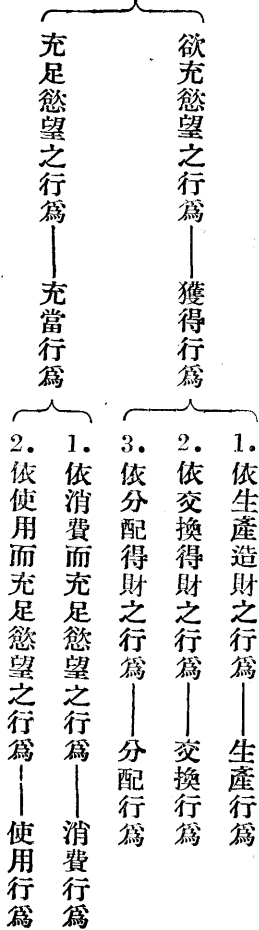 欲充慾望之行爲——獲得行爲
1.依生產造財之行爲——生產行爲
2.依交換得財之行爲——交換行爲
3.依分配得財之行爲——分配行爲
充足慾望之行爲——充當行爲
1.依消費而充足慾望之行爲——消費行爲
2.依使用而充足慾望之行爲——使用行爲